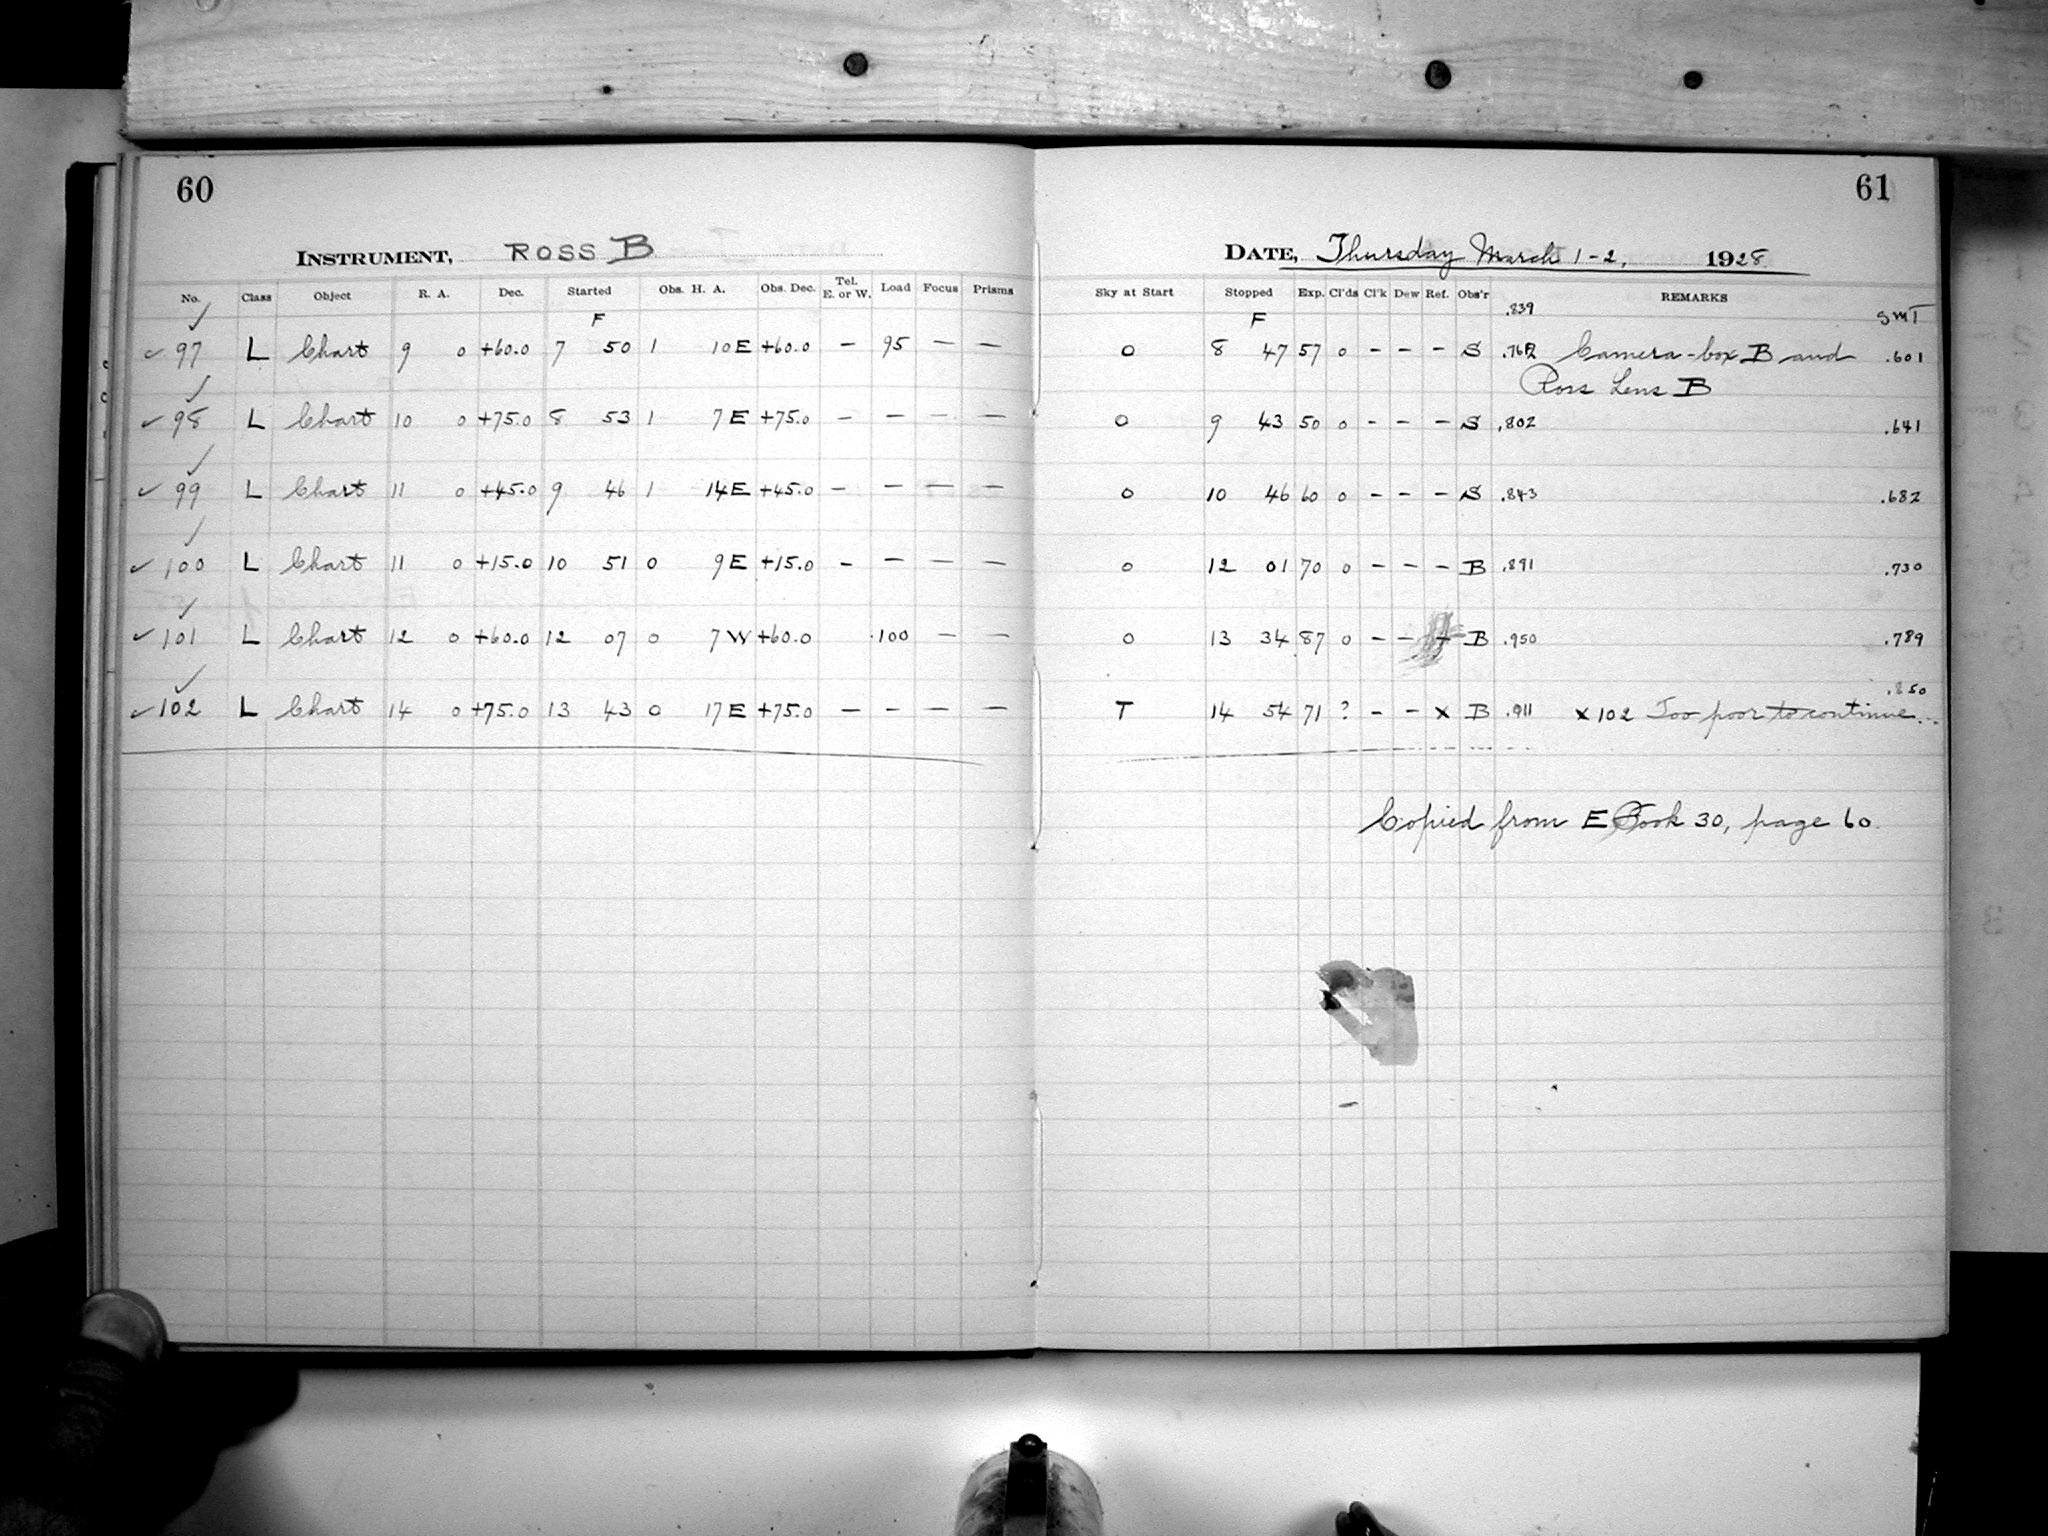 60
INSTRUMENT, ROSS B
No. Class Object R. A. Dec. Started Obs. H. A. Obs. Dec. Tel. E. or W. Load Focus Prisms
F
✓ 97 L Chart 9 0 +60.0 7 50 1 10 E +60.0 – 95 – –
✓ 98 L Chart 10 0 +75.0 8 53 1 7 E +75.0 – – – –
✓ 99 L Chart 11 0 +45.0 9 46 1 14 E +45.0 – – – –
✓ 100 L Chart 11 0 +15.0 10 51 0 9 E +15.0 – – – –
✓ 101 L Chart 12 0 +60.0 12 07 0 7 W +60.0 100 – –
✓ 102 L Chart 14 0 +75.0 13 43 0 17 E +75.0 – – – –
61
DATE, Thursday March 1-2, 1928
Sky at Start Stopped Exp. Cl'ds Cl'k Dew Ref. Obs'r REMARKS
F .839 GMT
0 8 47 57 0 – – – S Camera-box B and .601
Ross Lens B
0 9 43 50 0 – – – S .802 .641
0 10 46 60 0 – – – S .843 .682
0 12 01 70 0 – – – B .891 .730
0 13 34 87 0 – – B .950 .789
.850
T 14 54 71 ? – – x B .911 x 102 Too poor to continue...
Copied from E Book 30, page 60.